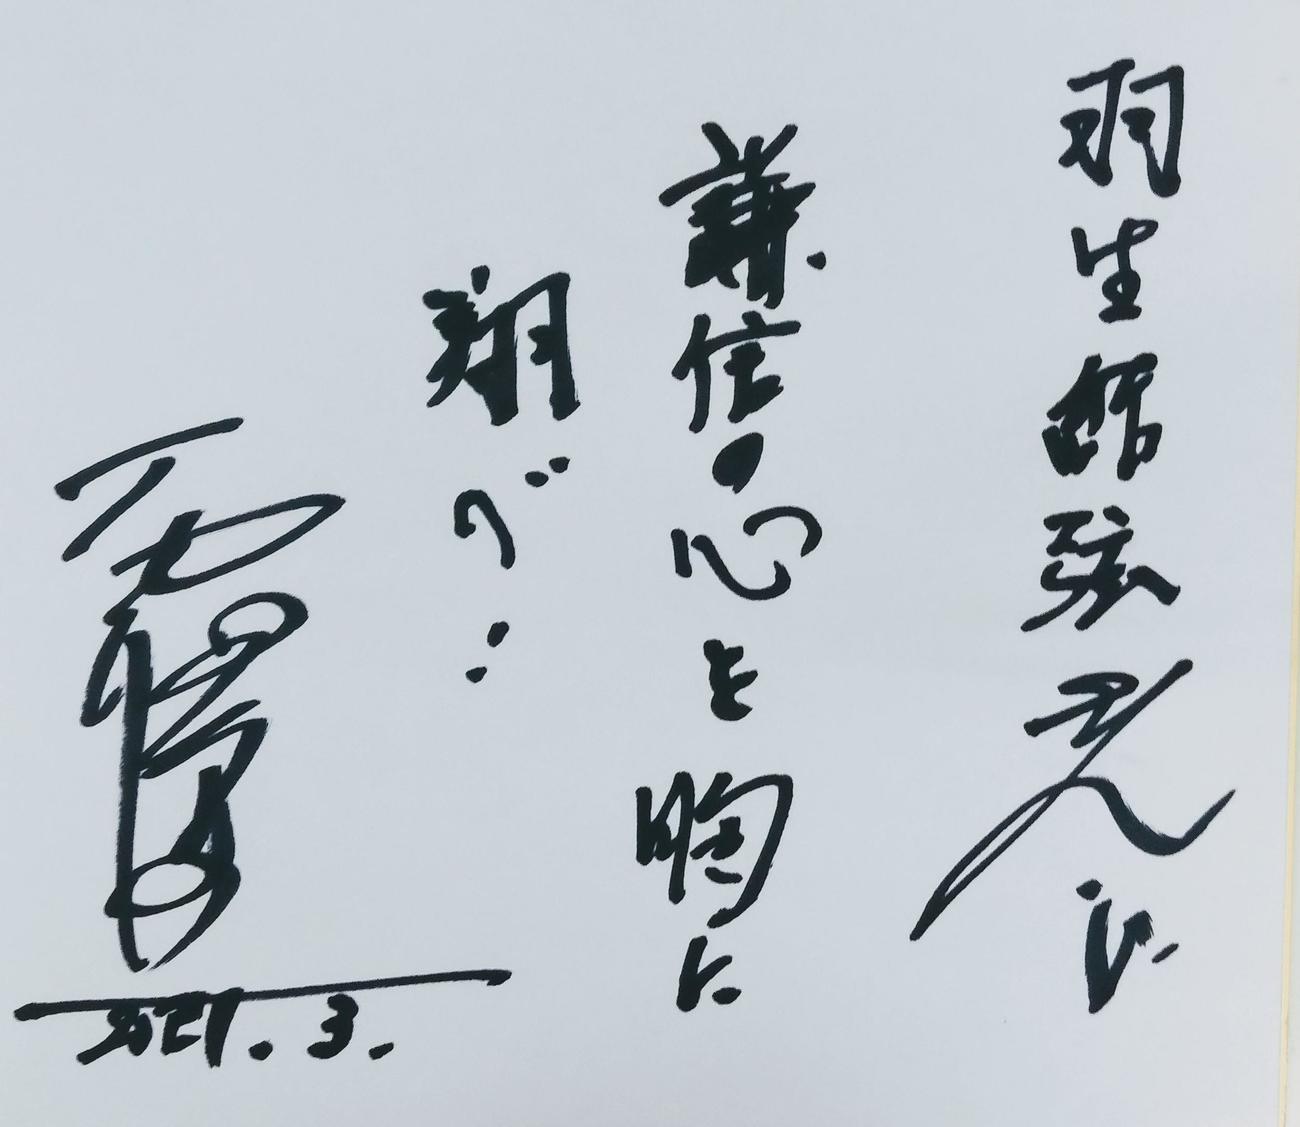 羽生結弦君に
謙信の心を胸に
翔べ‥
2021.3.